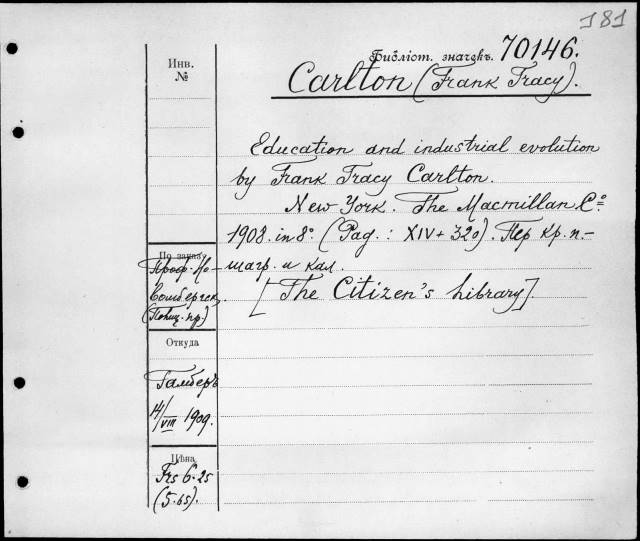 181
Инв.
№
Библіот. значекъ. 70146.
Carlton (Frank Tracy).
Education and industrial evolution
by Frank Tracy Carlton.
New York. The Macmillan Cº
1908. in 8º. (Pag.: XIV + 320). Пер кр. п.-
шагр. и кал.
[The Citizen's Library].
По заказу
Проф.
(Полиц. пр.)
Откуда
Гамберъ
14/VIII 1909.
Цѣна
Frs 6.25
(5.65).